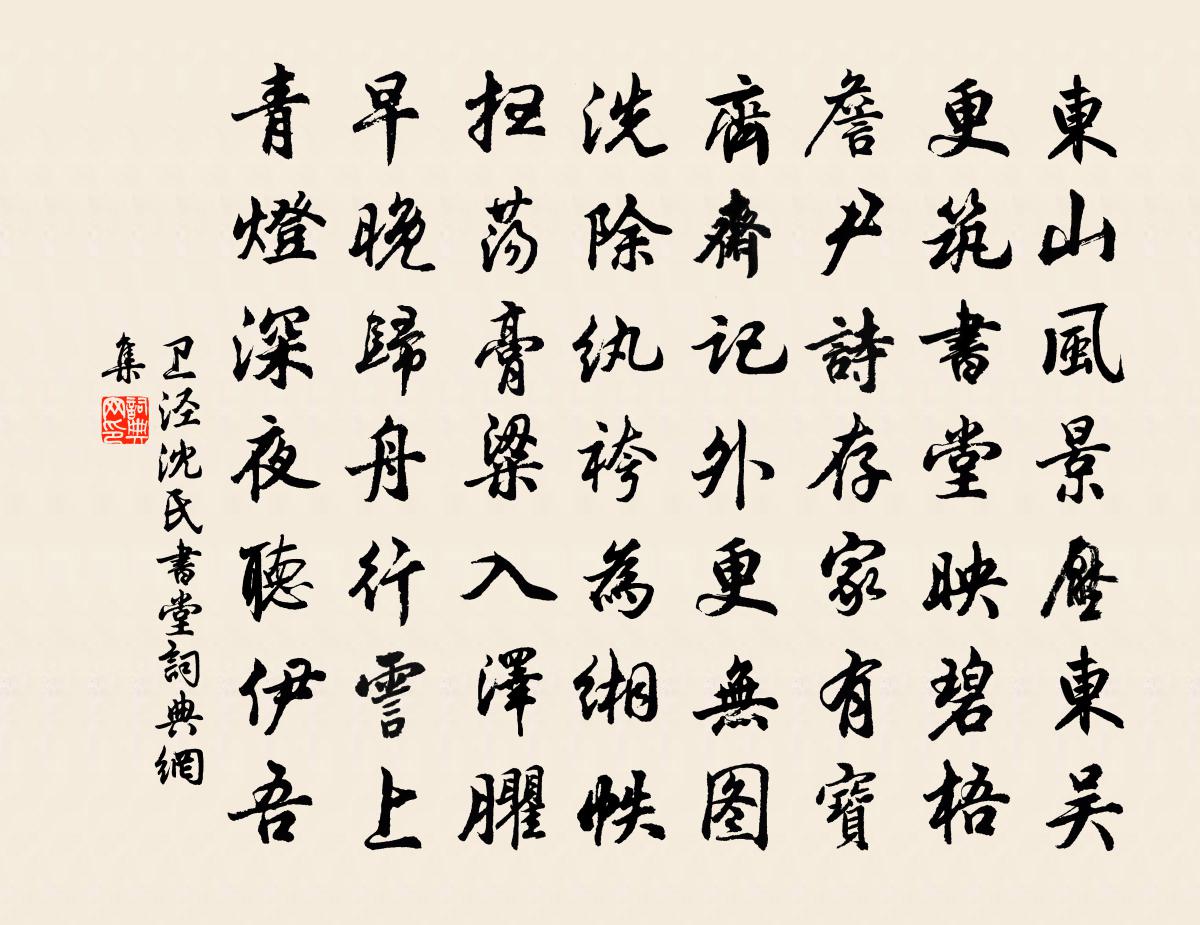 東山風景壓東吴
更筑書堂映碧梧
詹尹詩存家有寶
齊齋記外更無图
洗除紈袴為緗帙
荡膏粱入澤臞
早晚歸舟行霅上
青燈深夜聽伊吾
卫泾沈氏書堂詞典網
集
詞典网印